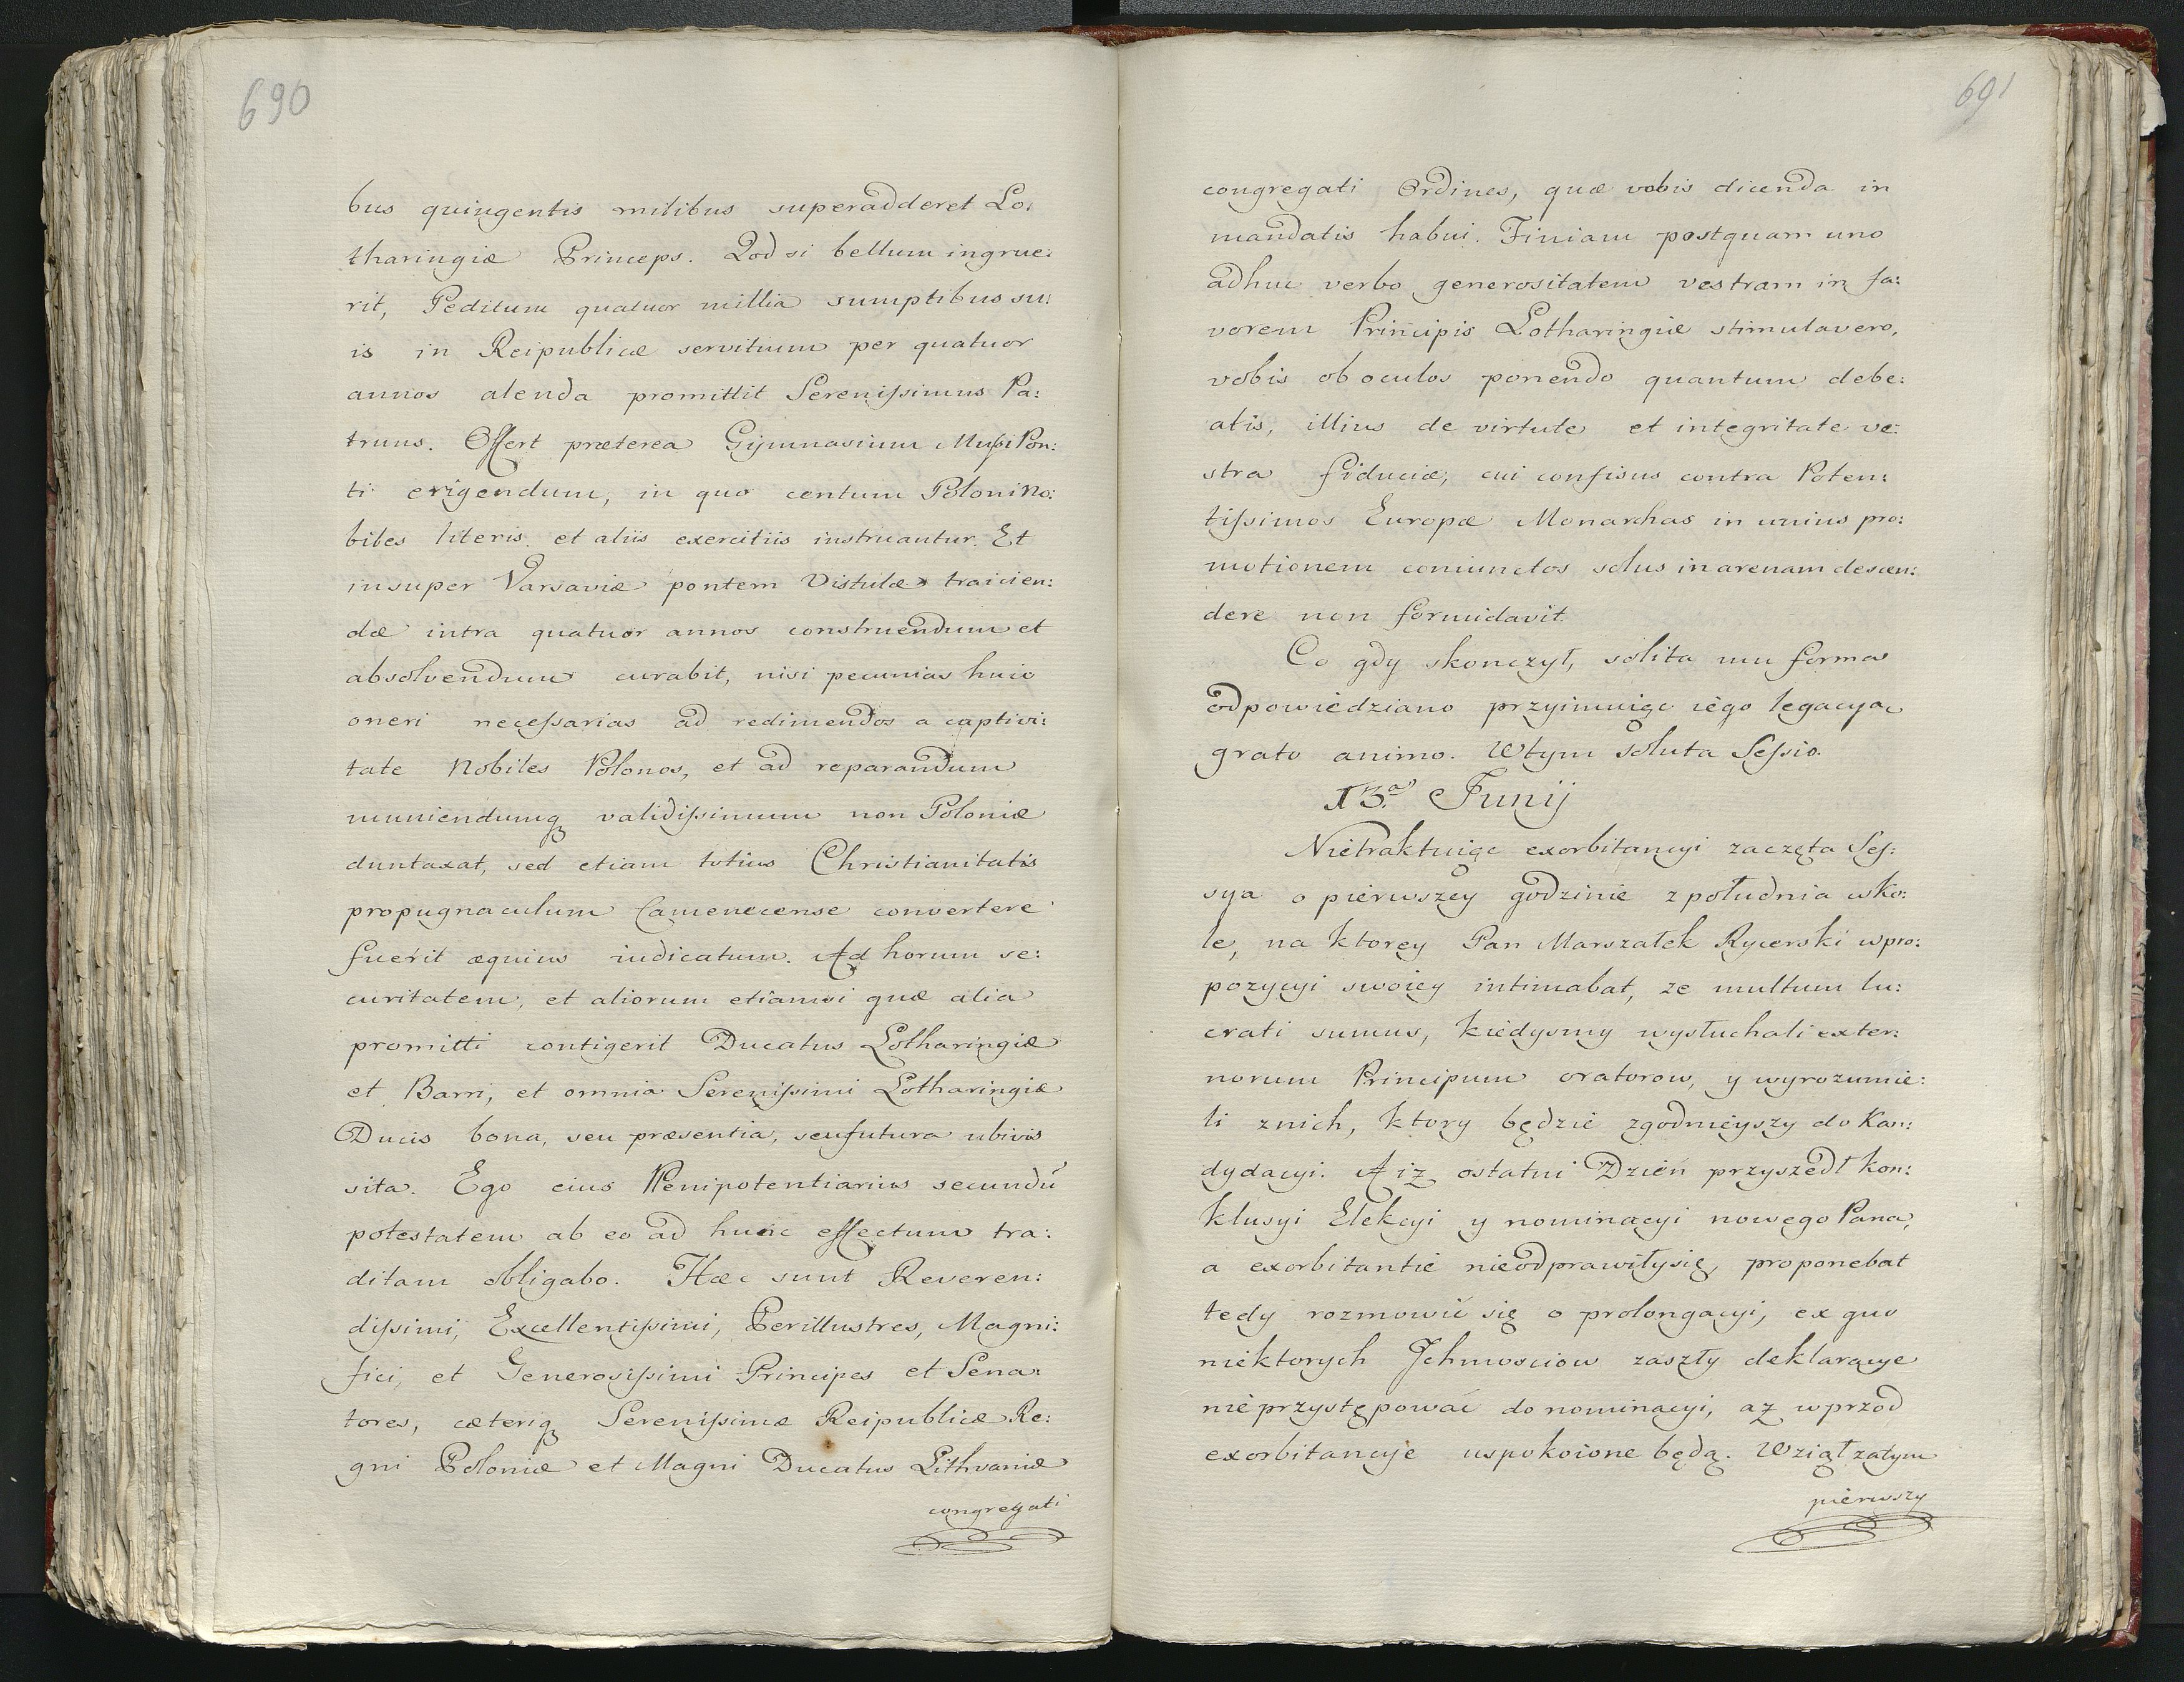 690
bus quingentis milibus superadderet Lo:
tharingiæ Princeps. Qod si bellum ingrue:
rit, Peditum quatuor millia sumptibus su:
is in Reipublicæ servitium per quatuor
annos alenda promittit Serenissimus Pa:
truus. Offert præterea Gijmnasium MussiPon:
ti erigendum, in quo centum Poloni No:
biles literis et aliis exercitiis instruantur. Et
insuper Varsaviæ pontem Vistulæ traiicien:
dæ intra quatuor annos construendum et
absolvendum curabit, nisi pecunias huic
oneri necessarias ad redimendos a captivi:
tate Nobiles Polonos, et ad reparandum
muniendumq validissimum non Poloniæ
duntaxat, sed etiam totius Christianitatis
propugnaculum Camenecense convertere
fuerit æquius iudicatum. Ad horum se:
curitatem, et aliorum etiamsi quæ alia
promitti contigerit Ducatus Lotharingiæ
et Barri, et omnia Serenissimi Lotharingiæ
Ducis bona, seu præsentia, seu futura ubivis
sita. Ego eius Plenipotentiarius secundū
potestatem ab eo ad hunc effectum tra:
ditam obligabo. Hæc sunt Reveren:
dissimi, Excellentissimi, Perillustres, Magni:
fici, et Generosissimi Principes et Sena:
tores, cæteriq Serenissimæ Reipublicæ Re:
gni Poloniæ et Magni Ducatus Lithvaniæ
congregati
691
congregati Ordines, quæ vobis dicenda in
mandatis habui. Finiam postquam uno
adhuc verbo generositatem vestram in fa:
vorem Principis Lotharingiæ stimulavero,
vobis ob oculos ponendo quantum debe:
atis, illius de virtute et integritate ve:
stra fiduciæ, cui confisus contra Poten:
tissimos Europæ Monarchas in unius pro:
motionem coniunctos solus in arenam descen:
dere non formidavit.
Co gdy skonczył, solita mu forma
odpowiedziano przyimuiąc iego legacyą
grato animo. Wtym soluta Sessio.
13.a Junij
Nietraktuiąc exorbitancyi zaczęta Ses:
sya o pierwszey godzinie z południa wko:
le, na ktorey Pan Marszałek Rycerski wpro:
pozycyi swoiey intimabat, ze multum lu:
crati sumus, kiedysmy wysłuchali exter:
norum Principum oratorow, y wyrozumie:
li znich, ktory będzie zgodnieyszy do Kan:
dydacyi. A iz ostatni Dzień przyszedł kon:
klusyi Elekcyi y nominacyi nowego Pana,
a exorbitantie nieodprawiłysię, proponebat
tedy rozmowić się o prolongacyi, ex quo
niektorych Jchmosciow zaszły deklaracye
nieprzystępować do nominacyi, az wprzod
exorbitancye uspokoione będą. Wziąłzatym
pierwszy